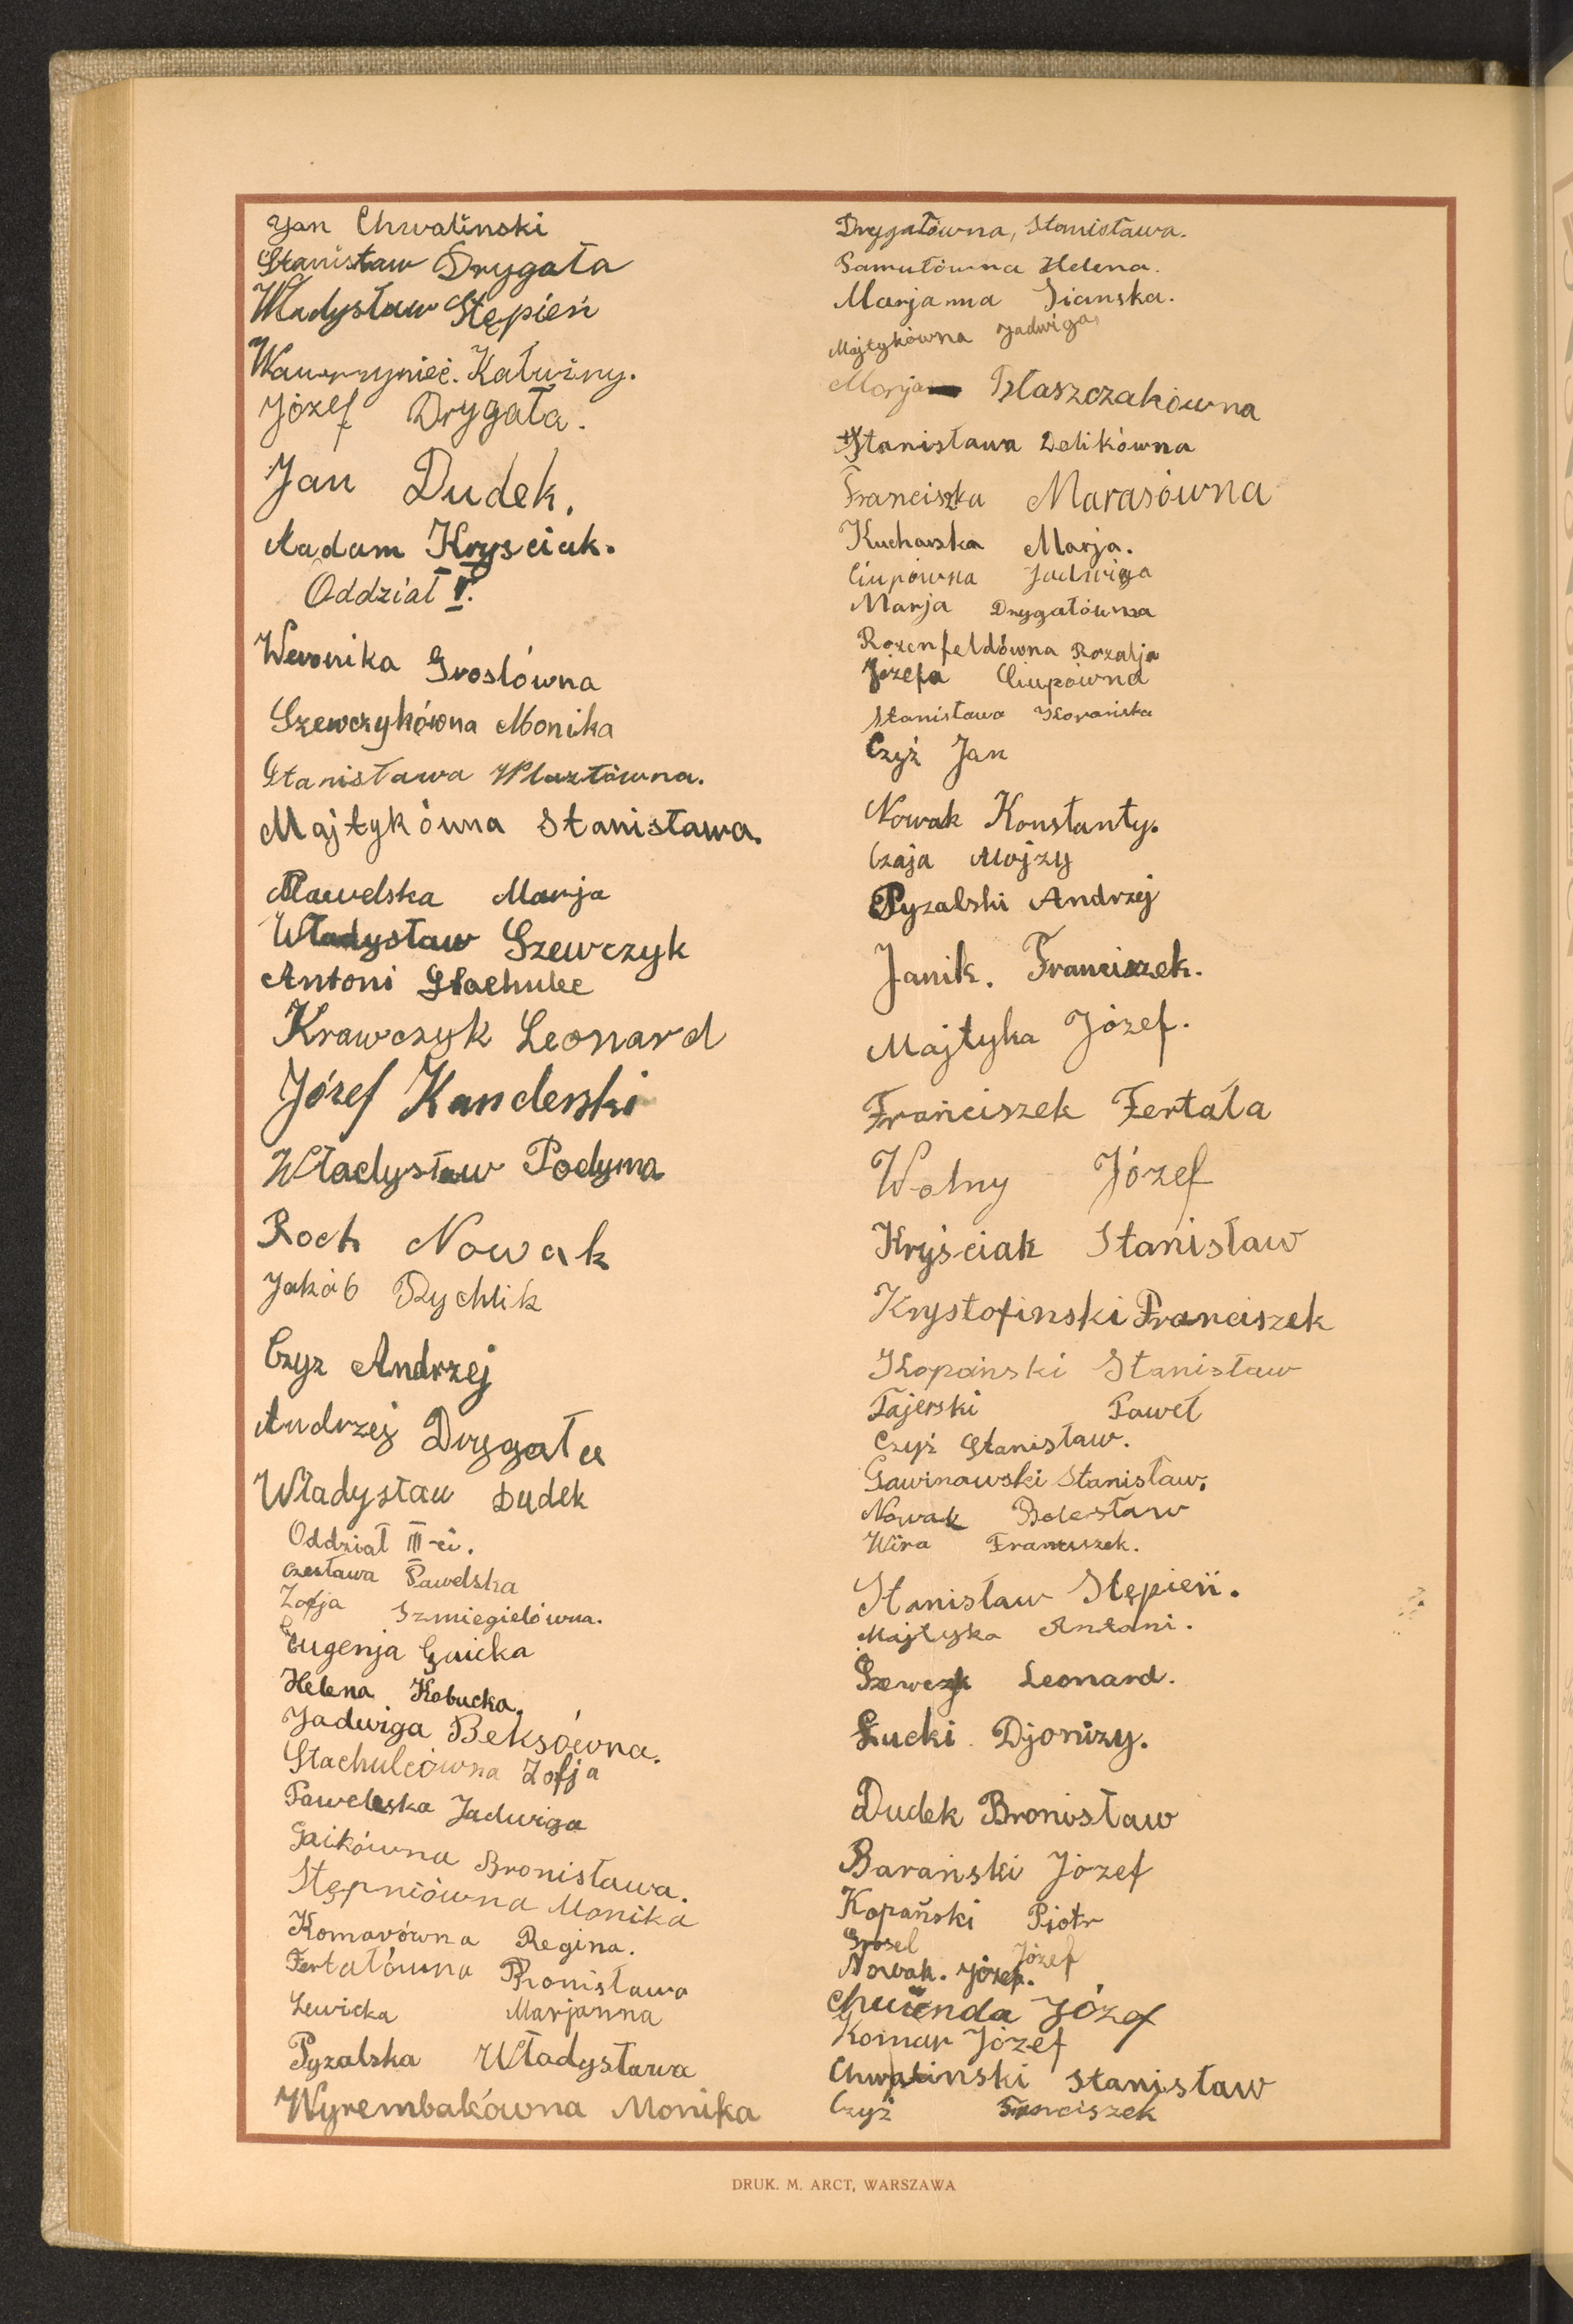 Jan Chwalinski
Stanisław Drygała
Władysław Stępień
Wawrzyniec. Kałużny.
Józef Drygała.
Jan Dudek.
Aadam Krysciak.
Oddział V.
Weronika Groslówna
Szewczykówna Monika
Stanisława Wlazłówna.
Majtykówna Stanisława.
Pawelska Marja
Władysław Szewczyk
Antoni Stachulec
Krawczyk Leonard
Józef Kanderski
Władysław Podyma
Roch Nowak
Jakób Rychlik
Czyz Andrzej
Andrzej Drygała
Władysław Dudek
Oddział III-ci.
Czesława Pawelska
Zofja Szmiegielówna.
Eugenja Gaicka
Helena Kobucka.
Jadwiga Beksówna.
Stachulcówna Zofja
Pawelska Jadwiga
Gaikówna Bronisława.
Stępniówna Monika
Komarówna Regina.
Fertałówna Bronisława
Lewicka Marjanna
Pyzalska Władysława
Wyrembakówna Monika
Drygałówna, Stanisława.
Samułówna Helena.
Marjanna
Majtykówna Jadwiga
Marja Błaszczakówna
Stanisława Delikówna
Franciszka Marasówna
Kucharska Marja.
Ciupówna Jadwiga
Marja Drygałówna
Rozenfeldówna Rozalja
Józefa Ciupówna
Stanisława
Czyż Jan
Nowak Konstanty.
Czaja Mojzy
Pyzalski Andrzej
Janik. Franciszek.
Majtyka Józef.
Franciszek Fertała
Wolny Józef
Kryściak Stanisław
Krystofinski Franciszek
Kopański Stanisław
Tajerski Paweł
Czyż Stanisław.
Gawinowski Stanisław.
Nowak Bolesław
Wira Franciszek.
Stanisław Stępień.
Majtyka Antoni.
Szewczyk Leonard.
Łucki Djonizy.
Dudek Bronisław
Barański Józef
Kopański Piotr
Grosel Józef
Nowak. Józef.
Józef
Komar Józef
Chwalinski Stanisław
Czyż Franciszek
DRUK. M. ARCT, WARSZAWA